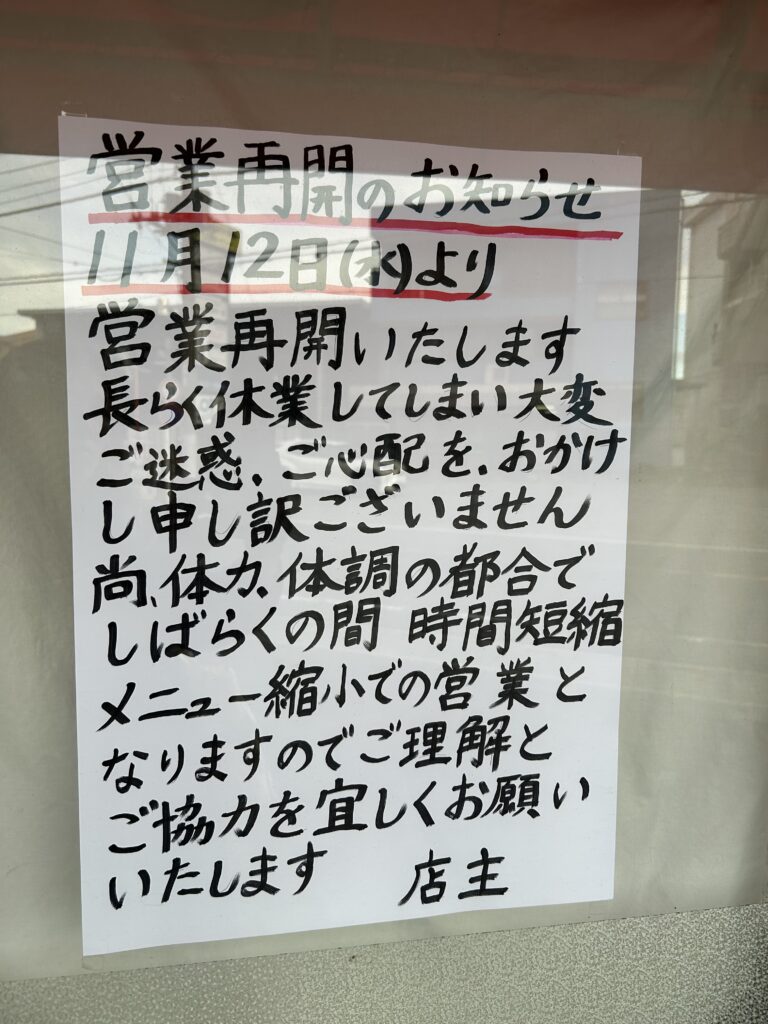 営業再開のお知らせ
11月12日(水)より
営業再開いたします
長らく休業してしまい大変
ご迷惑、ご心配を、おかけ
し申し訳ございません
尚、体力、体調の都合で
しばらくの間 時間短縮
メニュー縮小での営業と
なりますのでご理解と
ご協力を宜しくお願い
いたします 店主